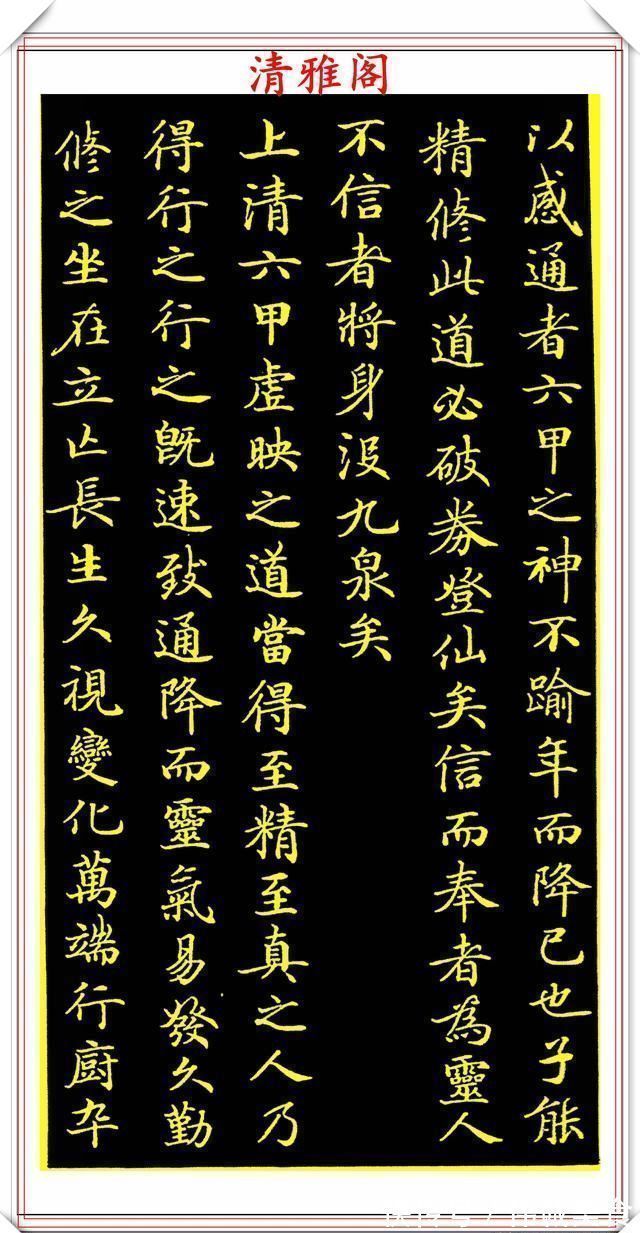 清雅阁
以感通者六甲之神不踰年而降已也子能
精修此道必破券登仙矣信而奉者為靈人
不信者將身沒九泉矣
上清六甲虛映之道當得至精至真之人乃
得行之行之既速致通降而靈氣易發久勤
修之坐在立亡長生久視變化萬端行廚卒